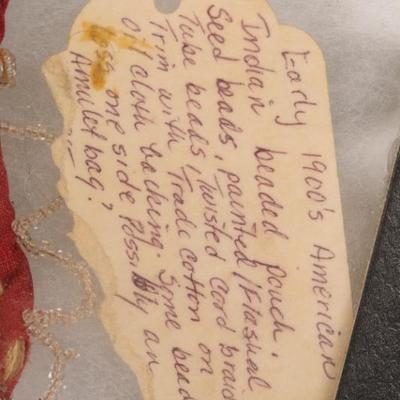 Early 1900's American
Indian beaded pouch.
Seed beads, painted/Flashed
Tube beads, Twisted cord braid
Trim with Trade cotton on
on cloth backing. Some bead
loss one side Possibly an
Amulet bag?